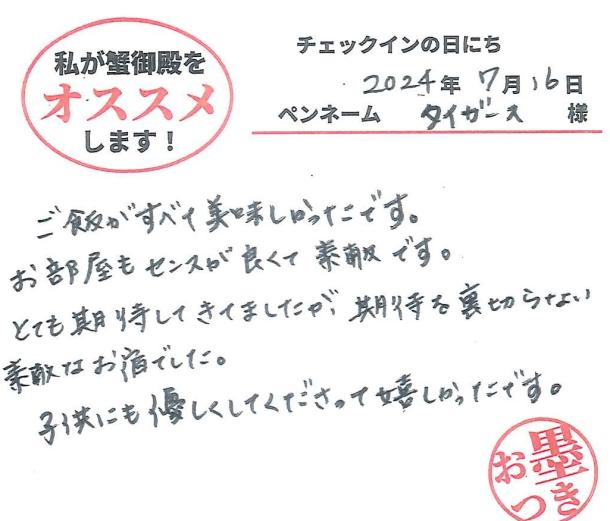 私が蟹御殿を
オススメ
します！
チェックインの日にち
2024年 7月16日
ペンネーム タイガース 様
ご飯がすべて美味しかったです。
お部屋もセンスが良くて素敵です。
とても期待してきてましたが、期待を裏切らない
素敵なお宿でした。
子供にも優しくしてくださって嬉しかったです。
お墨
つき